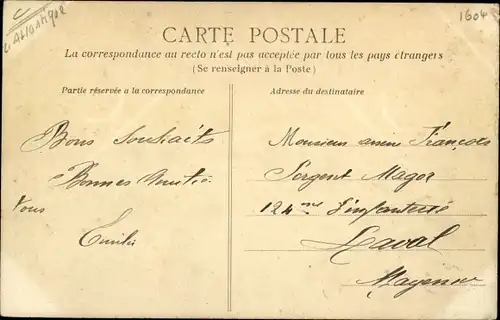 1604
CARTE POSTALE
La correspondance au recto n'est pas acceptée par tous les pays étrangers
(Se renseigner à la Poste)
Partie réservée a la correspondance
Adresse du destinataire
Bons Souhaits
Bonnes
Vous
Emile
Monsieur François
Sergent Major
124me d'infanterie
Laval
Mayenne